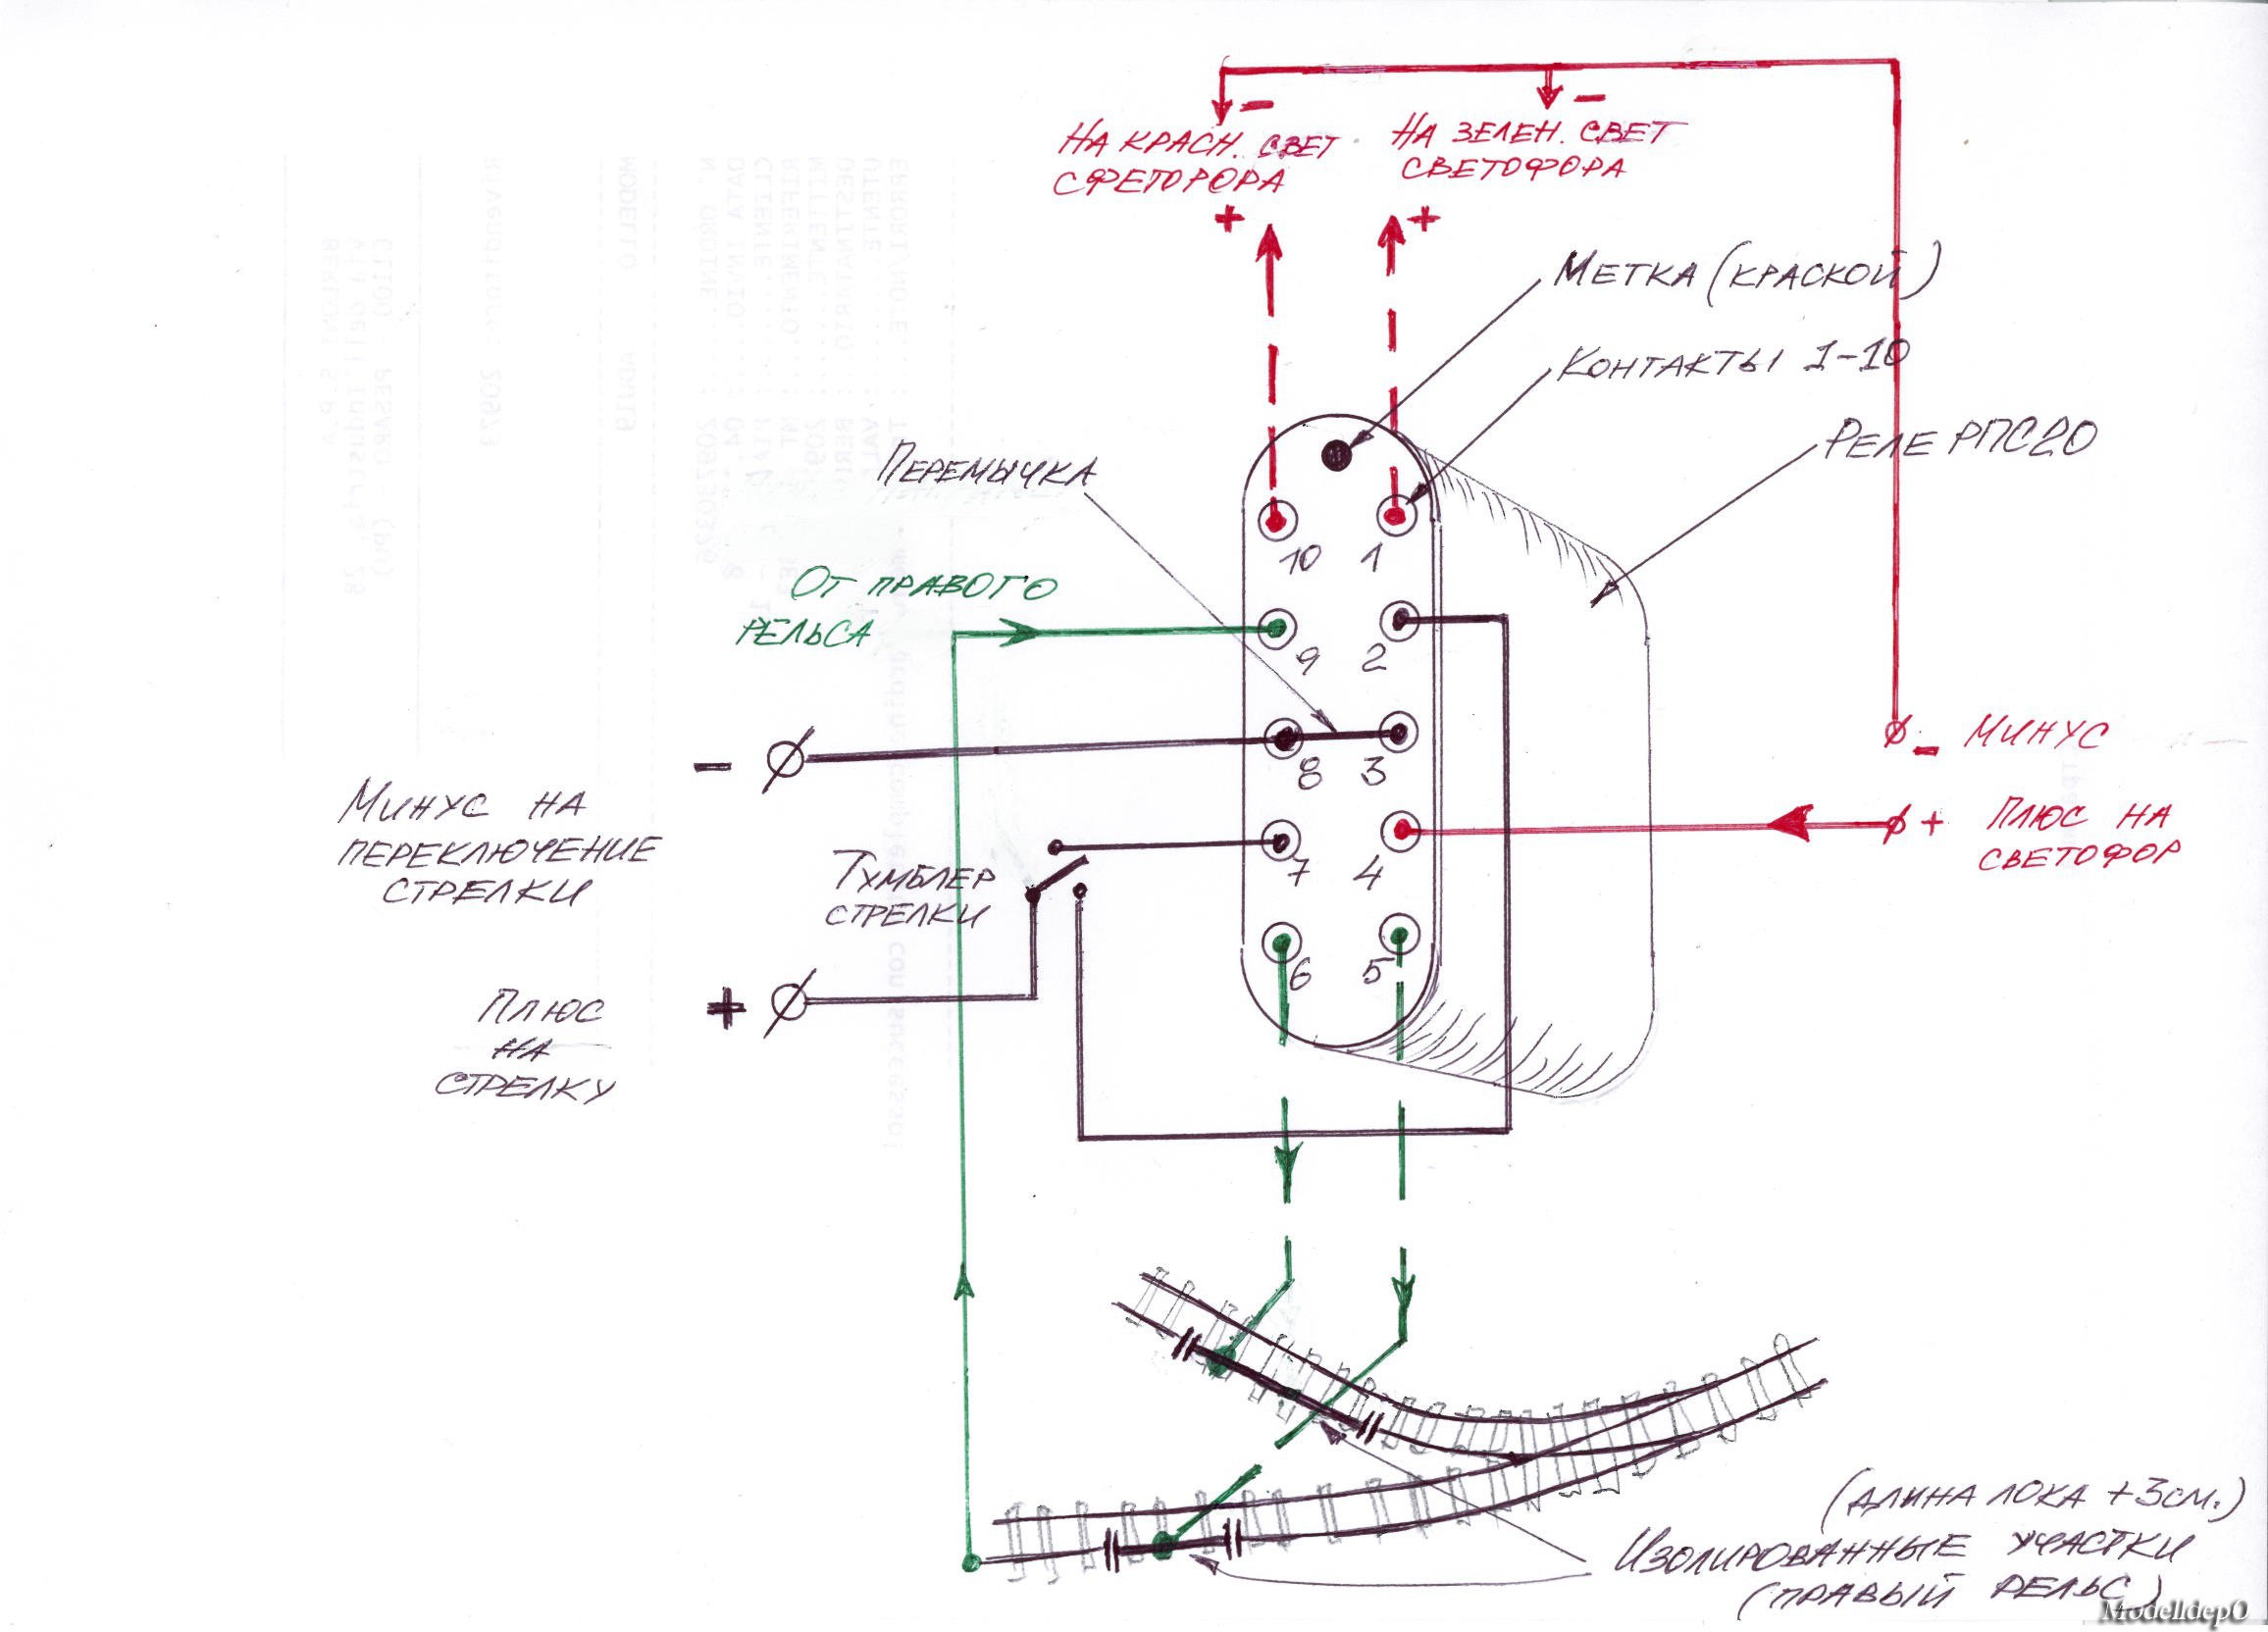 -
-
НА КРАСН. СВЕТ
СФЕТОРОРА
+
НА ЗЕЛЕН. СВЕТ
СВЕТОФОРА
+
МЕТКА (КРАСКОЙ)
КОНТАКТЫ 1-10
РЕЛЕ РПС20
ПЕРЕМЫЧКА
10 1
ОТ ПРАВОГО
РЕЛЬСА
9 2
8 3
- МИНУС
-
МИНУС НА
ПЕРЕКЛЮЧЕНИЕ
СТРЕЛКИ
7 4
+ ПЛЮС НА
СВЕТОФОР
ТУМБЛЕР
СТРЕЛКИ
6 5
+
ПЛЮС
НА
СТРЕЛКУ
(ДЛИНА ЛОКА +3СМ.)
ИЗОЛИРОВАННЫЕ УЧАСТКИ
(ПРАВЫЙ РЕЛЬС)
ModelldepO
MODELLO ADNJ19
Rivenditore: 20973